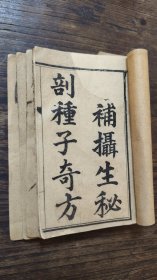 補攝生秘
剖種子奇方